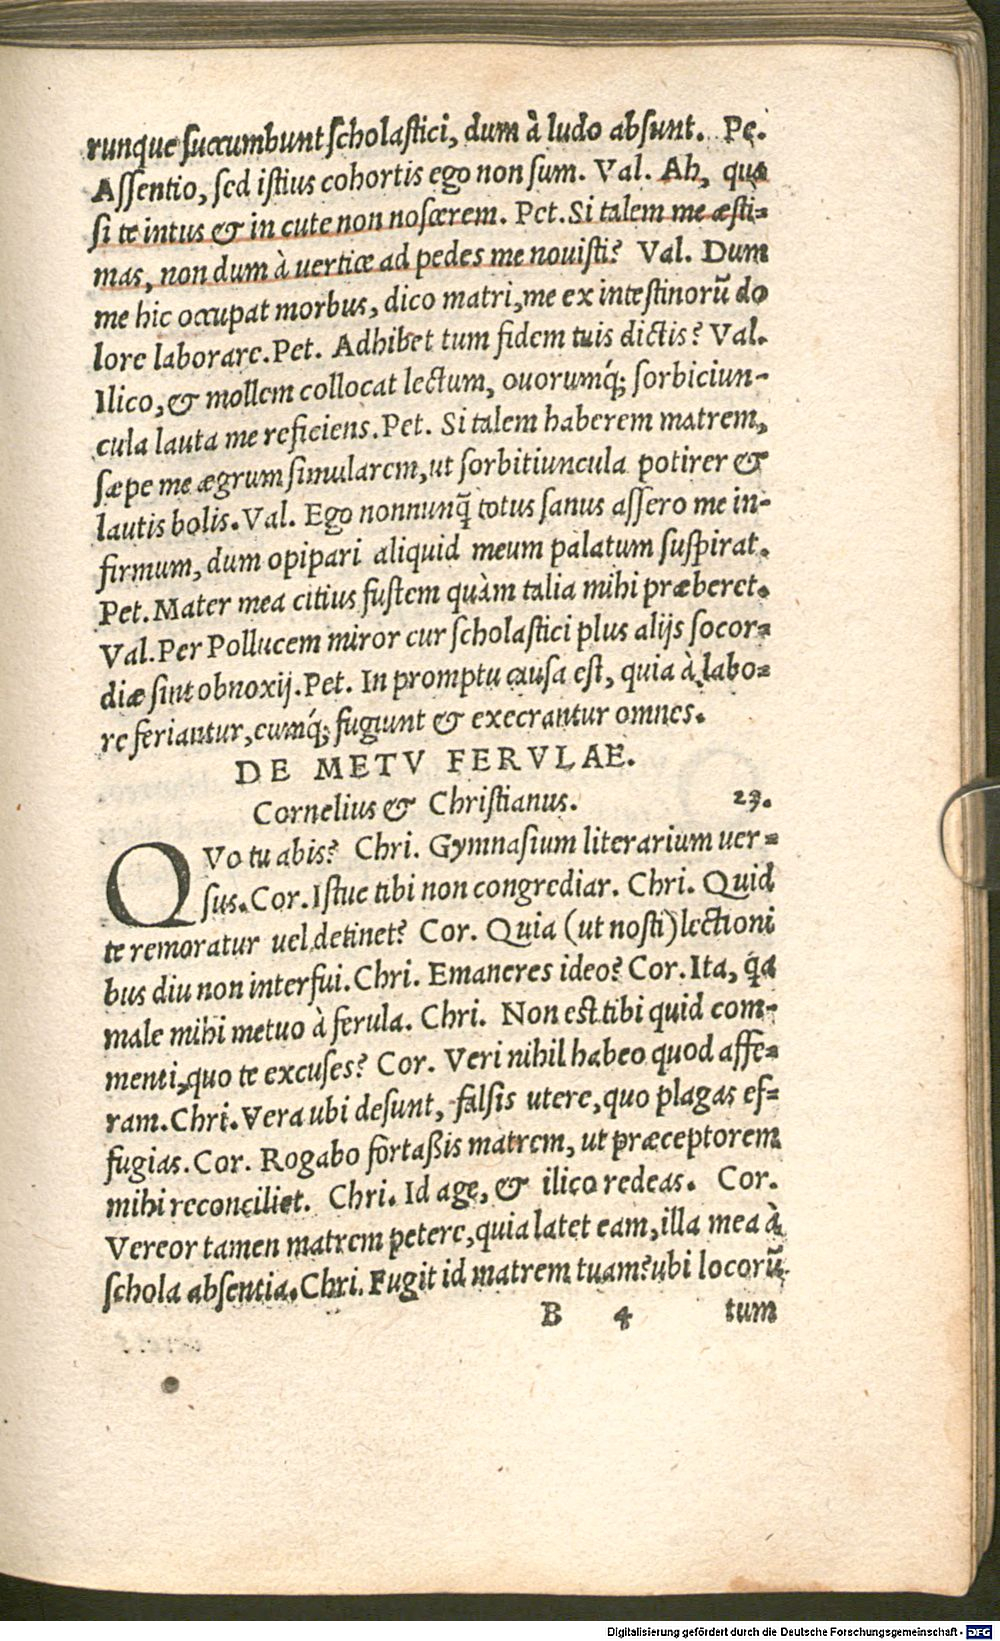 runque succumbunt scholastici, dum à ludo absunt. Pe.
Assentio, sed istius cohortis ego non sum. Val. Ah, qua
si te intus & in cute non noscerem. Pet. Si talem me æsti=
mas, non dum à uertice ad pedes me nouisti? Val. Dum
me hic occupat morbus, dico matri, me ex intestinorū do
lore laborare. Pet. Adhibet tum fidem tuis dictis? Val.
Ilico, & mollem collocat lectum, ouorumq́; sorbiciun-
cula lauta me reficiens. Pet. Si talem haberem matrem,
sæpe me ægrum simularem, ut sorbitiuncula potirer &
lautis bolis. Val. Ego nonnunq̃ totus sanus assero me in-
firmum, dum opipari aliquid meum palatum suspirat.
Pet. Mater mea citius fustem quàm talia mihi præberet.
Val. Per Pollucem miror cur scholastici plus alijs socor=
diæ sint obnoxij. Pet. In promptu causa est, quia à labo=
re feriantur, eumq́; fugiunt & execrantur omnes.
DE METV FERVLAE.
Cornelius & Christianus. 23.
QVo tu abis? Chri. Gymnasium literarium uer=
sus. Cor. Istuc tibi non congrediar. Chri. Quid
te remoratur uel detinet? Cor. Quia (ut nosti) lectioni
bus diu non interfui. Chri. Emaneres ideo? Cor. Ita, q̃a
male mihi metuo à ferula. Chri. Non est tibi quid com-
menti, quo te excuses? Cor. Veri nihil habeo quod affe=
ram. Chri. Vera ubi desunt, falsis utere, quo plagas ef=
fugias. Cor. Rogabo fortaßis matrem, ut præceptorem
mihi reconciliet. Chri. Id age, & ilico redeas. Cor.
Vereor tamen matrem petere, quia latet eam, illa mea à
schola absentia. Chri. Fugit id matrem tuam? ubi locorū
B 4 tum
Digitalisierung gefördert durch die Deutsche Forschungsgemeinschaft - DFG